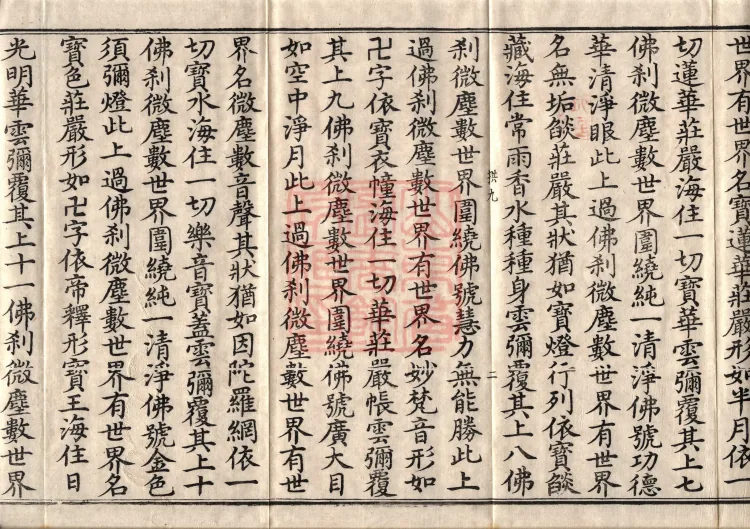 世界有世界名寶蓮華莊嚴形如半月依一
切蓮華莊嚴海住一切寶華雲彌覆其上七
佛刹微塵數世界圍繞純一清淨佛號功德
華清淨眼此上過佛刹微塵數世界有世界
名無垢燄莊嚴其狀猶如寶燈行列依寶燄
藏海住常雨香水種種身雲彌覆其上八佛
拱九 二
刹微塵數世界圍繞佛號慧力無能勝此上
過佛刹微塵數世界有世界名妙梵音形如
卍字依寶衣幢海住一切華莊嚴帳雲彌覆
其上九佛刹微塵數世界圍繞佛號廣大目
如空中淨月此上過佛刹微塵數世界有世
界名微塵數音聲其狀猶如因陀羅網依一
切寶水海住一切樂音寶蓋雲彌覆其上十
佛刹微塵數世界圍繞純一清淨佛號金色
須彌燈此上過佛刹微塵數世界有世界名
寶色莊嚴形如卍字依帝釋形寶王海住日
光明華雲彌覆其上十一佛刹微塵數世界